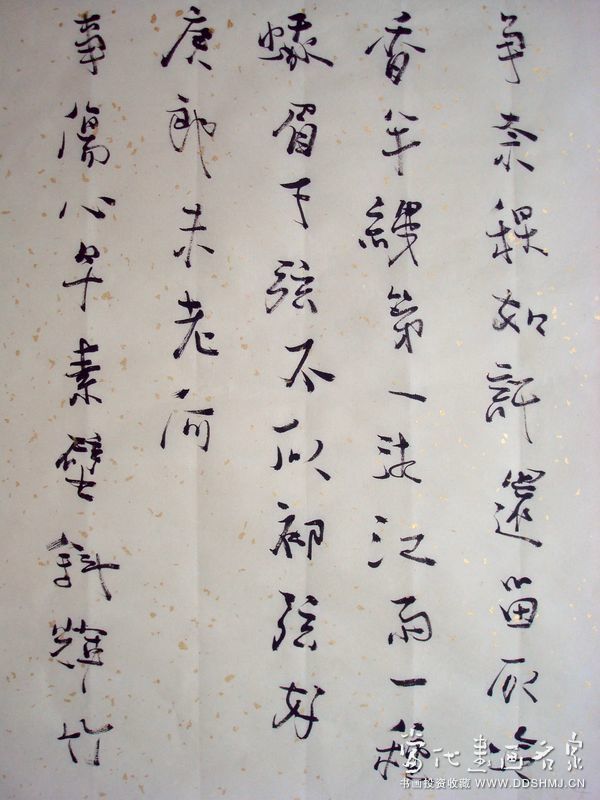 争奈秋如許還留取冷
香半縷第一湘江雨一種
蛾眉下弦不似初弦好
庾郎未老何
事傷心早素壁斜輝竹
當代書画名家
书画投资收藏 WWW.DDSHMJ.CN